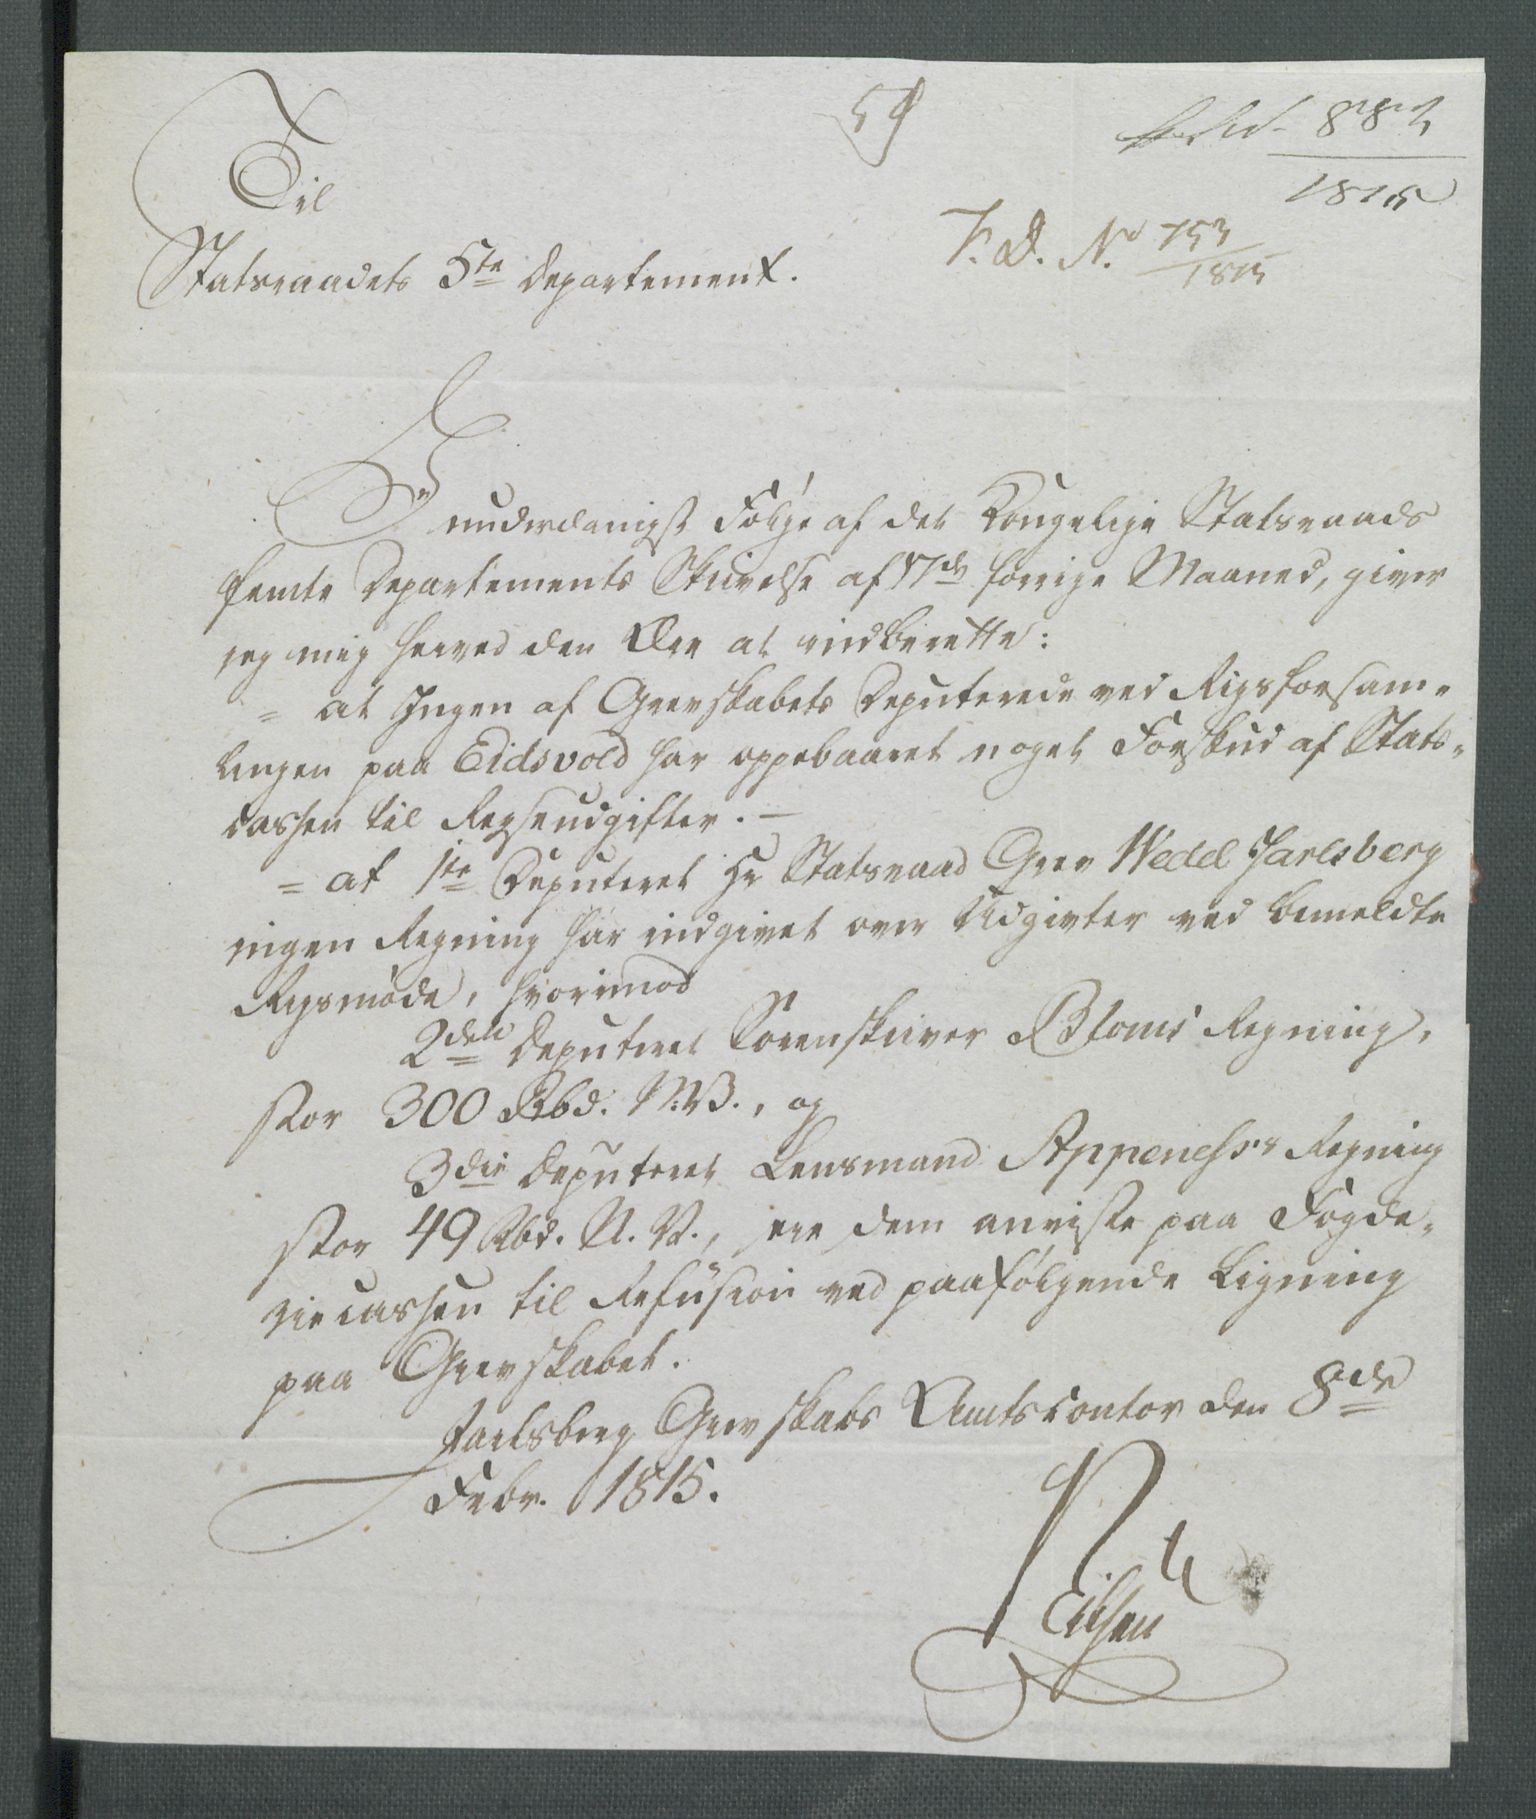 59
882
1815
F. D. No 753
1815
Til
Statsraadets 5te Departement.
I underdanigst Følge af det Kongelige Statsraads
femte Departements Skrivelse af 17de forrige Maaned, giver
jeg mig herved den Ære at indberette:
= at Ingen af Grevskabets Deputerede ved Rigsforsam-
lingen paa Eidsvold har oppebaaret noget Forskud af Stats-
cassen til Reyseudgifter. —
= at 1te Deputeret Hr Statsraad Grev Wedel Jarlsberg
ingen Regning har indgivet over Udgivter ved bemeldte
Rigsmøde, hvorimod
2den Deputeret Sorenskriver Bloms Regning,
stor 300 Rbd. N.V., og
3die Deputeret Lensmand Appeness's Regning
stor 49 Rbd. N. V., ere dem anviste paa Fogde-
riecassen til Refusion ved paafølgende Ligning
paa Grevskabet.
Jarlsberg Grevskabs Amtscontor den 8de
Febr. 1815.